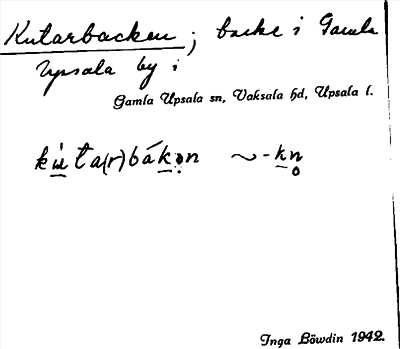 Kutarbacken; backe i Gamla
Upsala by i
Gamla Upsala sn, Vaksala hd, Upsala l.
kùta(r)bákən ~ -kn̥
Inga Löwdin 1942.